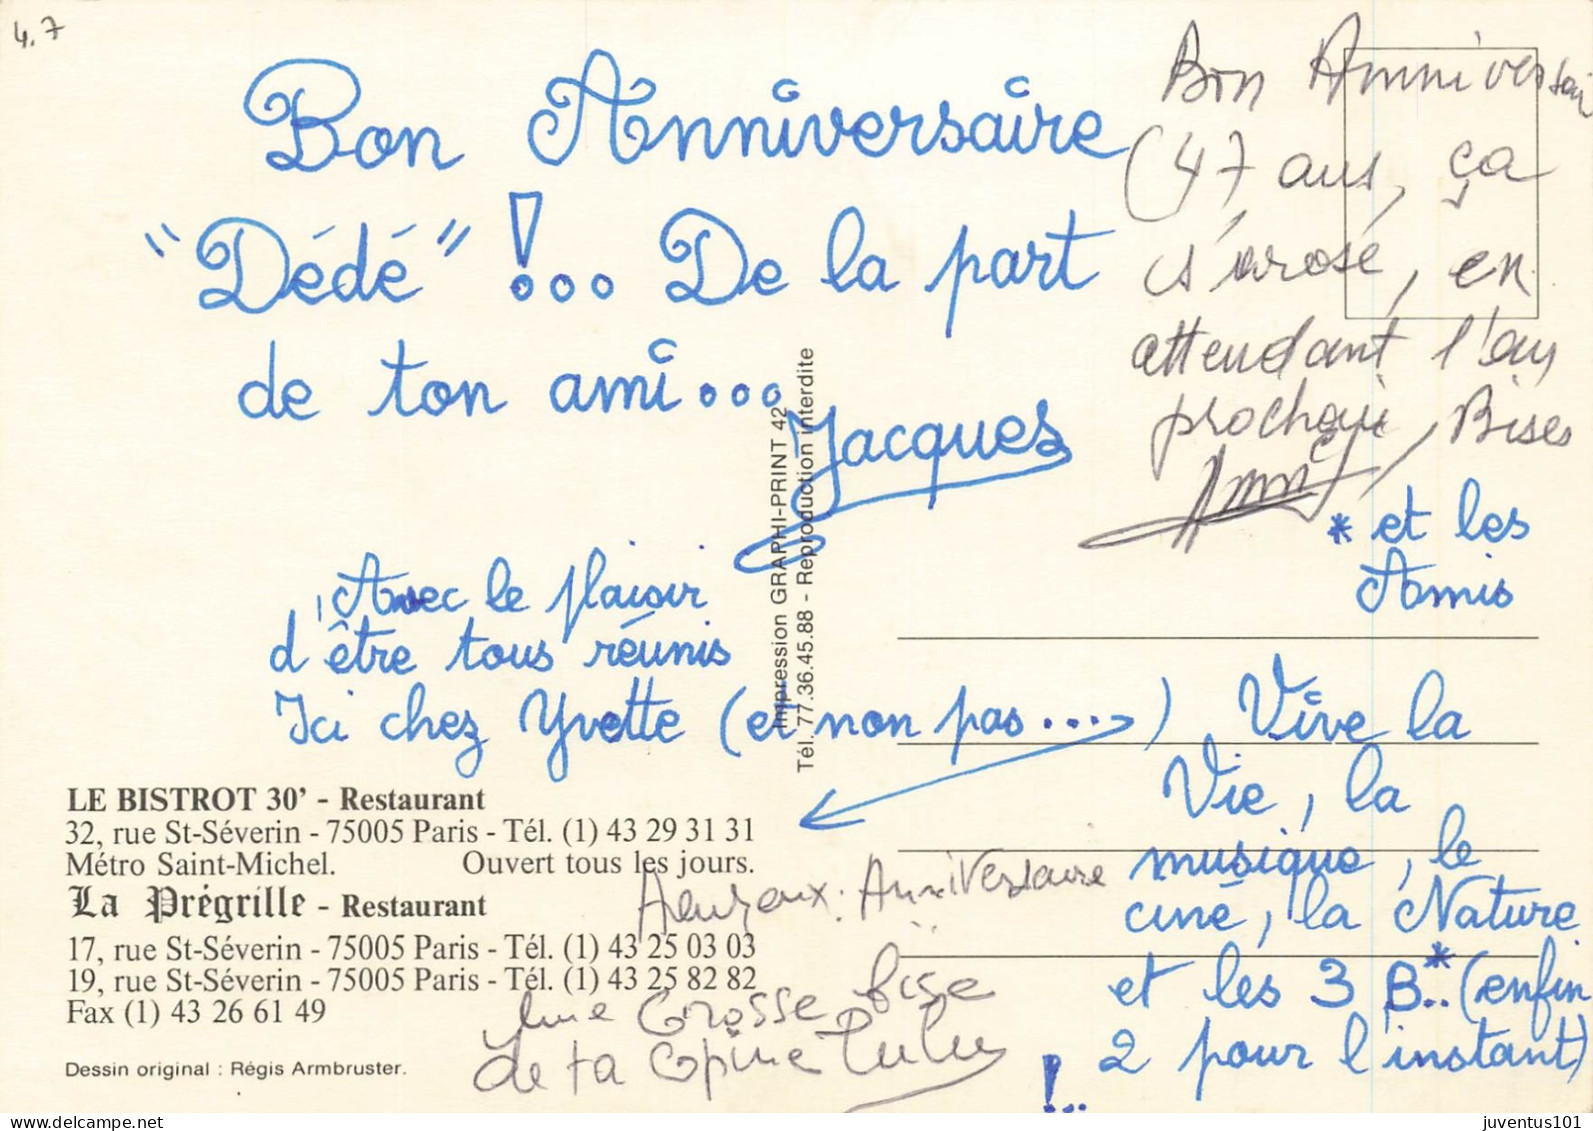 4.7
Bon Anniversaire
"Dédé" !... De la part
de ton ami...
Jacques
Bon Anniversair
(47 ans, ça
s'arose, en
attendant l'an
prochain, Bises
* et les
Amis
Avec le plaisir
d'être tous réunis
Ici chez Yvette (et non pas ...)
Vive la
Vie, la
musique, le
ciné, la Nature
et les 3 B..* (enfin
2 pour l'instant)
!..
Impression GRAPHI-PRINT 42
Tél. 77.36.45.88 - Reproduction interdite
LE BISTROT 30' - Restaurant
32, rue St-Séverin - 75005 Paris - Tél. (1) 43 29 31 31
Métro Saint-Michel. Ouvert tous les jours.
La Prégrille - Restaurant
17, rue St-Séverin - 75005 Paris - Tél. (1) 43 25 03 03
19, rue St-Séverin - 75005 Paris - Tél. (1) 43 25 82 82
Fax (1) 43 26 61 49
Dessin original : Régis Armbruster.
Heureux Anniversaire
Une Grosse bise
de ta copine Lulu
juventus101